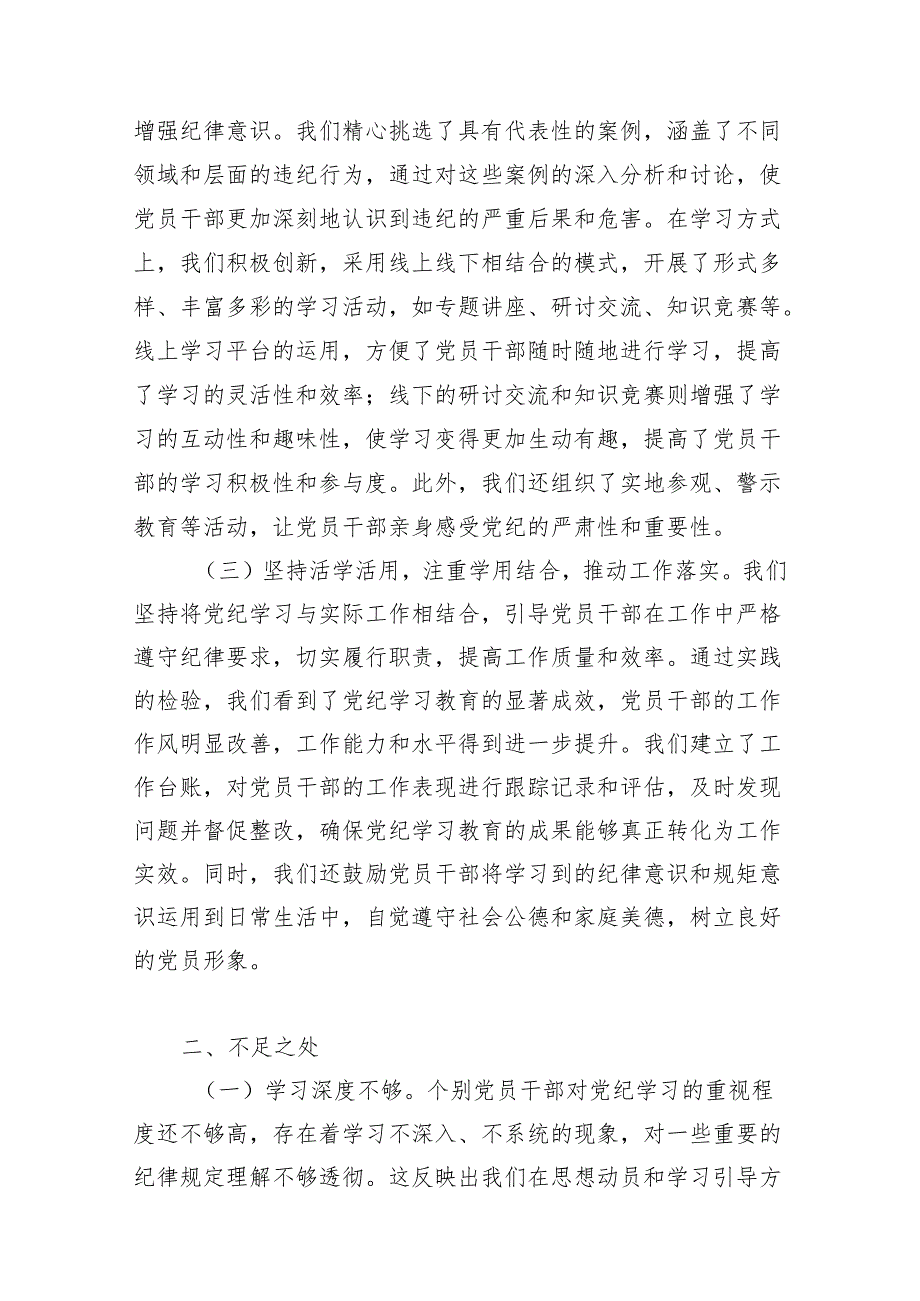 增强纪律意识。我们精心挑选了具有代表性的案例，涵盖了不同
领域和层面的违纪行为，通过对这些案例的深入分析和讨论，使
党员干部更加深刻地认识到违纪的严重后果和危害。在学习方式
上，我们积极创新，采用线上线下相结合的模式，开展了形式多
样、丰富多彩的学习活动，如专题讲座、研讨交流、知识竞赛等。
线上学习平台的运用，方便了党员干部随时随地进行学习，提高
了学习的灵活性和效率；线下的研讨交流和知识竞赛则增强了学
习的互动性和趣味性，使学习变得更加生动有趣，提高了党员干
部的学习积极性和参与度。此外，我们还组织了实地参观、警示
教育等活动，让党员干部亲身感受党纪的严肃性和重要性。
（三）坚持活学活用，注重学用结合，推动工作落实。我们
坚持将党纪学习与实际工作相结合，引导党员干部在工作中严格
遵守纪律要求，切实履行职责，提高工作质量和效率。通过实践
的检验，我们看到了党纪学习教育的显著成效，党员干部的工作
作风明显改善，工作能力和水平得到进一步提升。我们建立了工
作台账，对党员干部的工作表现进行跟踪记录和评估，及时发现
问题并督促整改，确保党纪学习教育的成果能够真正转化为工作
实效。同时，我们还鼓励党员干部将学习到的纪律意识和规矩意
识运用到日常生活中，自觉遵守社会公德和家庭美德，树立良好
的党员形象。
二、不足之处
（一）学习深度不够。个别党员干部对党纪学习的重视程
度还不够高，存在着学习不深入、不系统的现象，对一些重要的
纪律规定理解不够透彻。这反映出我们在思想动员和学习引导方